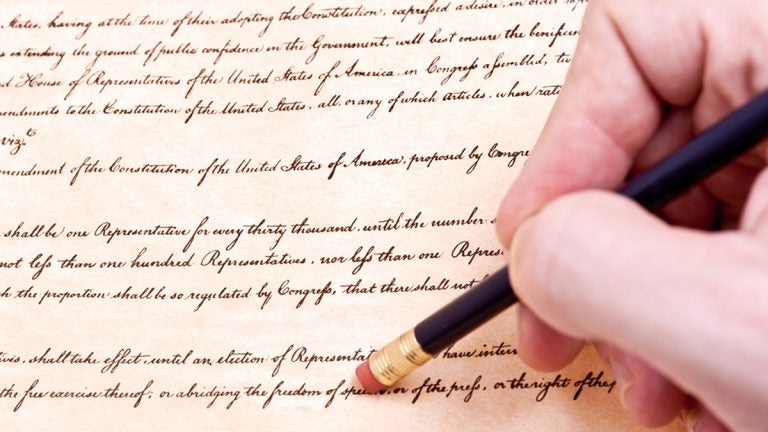 States, having at the time of their adopting the Constitution, expressed a desire, in order
extending the ground of public confidence in the Government, will best ensure the beneficen
d House of Representatives of the United States of America, in Congreſs aſsembled, tw
mendments to the Constitution of the United States, all, or any of which Articles, when rati
vizt
mendment of the Constitution of the United States of America, proposed by Congre
shall be one Representative for every thirty thousand, until the number
not leſs than one hundred Representatives, nor leſs than one Repres
h the proportion shall be so regulated by Congreſs, that there shall not
tives, shall take effect, until an election of Representat have interv
the free exercise thereof; or abridging the freedom of speech, or of the preſs, or the right of the p